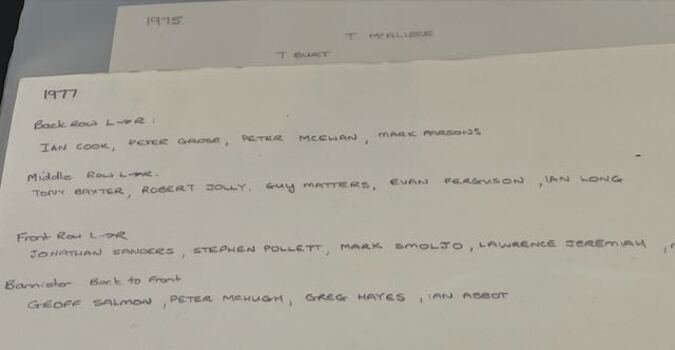 1975
T McALIECE
T BURT
1977
Back Row L→R:
IAN COOK, PETER GROSE, PETER MCEWAN, MARK PARSONS
Middle Row L→R.
TONY BAXTER, ROBERT JOLLY. GUY MATTERS, EVAN FERGUSON, IAN LONG
Front Row L→R
JONATHAN SANDERS, STEPHEN POLLETT, MARK SMOLJO, LAWRENCE JEREMIAH,
Bannister Back to Front
GEOFF SALMON, PETER MCHUGH, GREG HAYES, IAN ABBOT